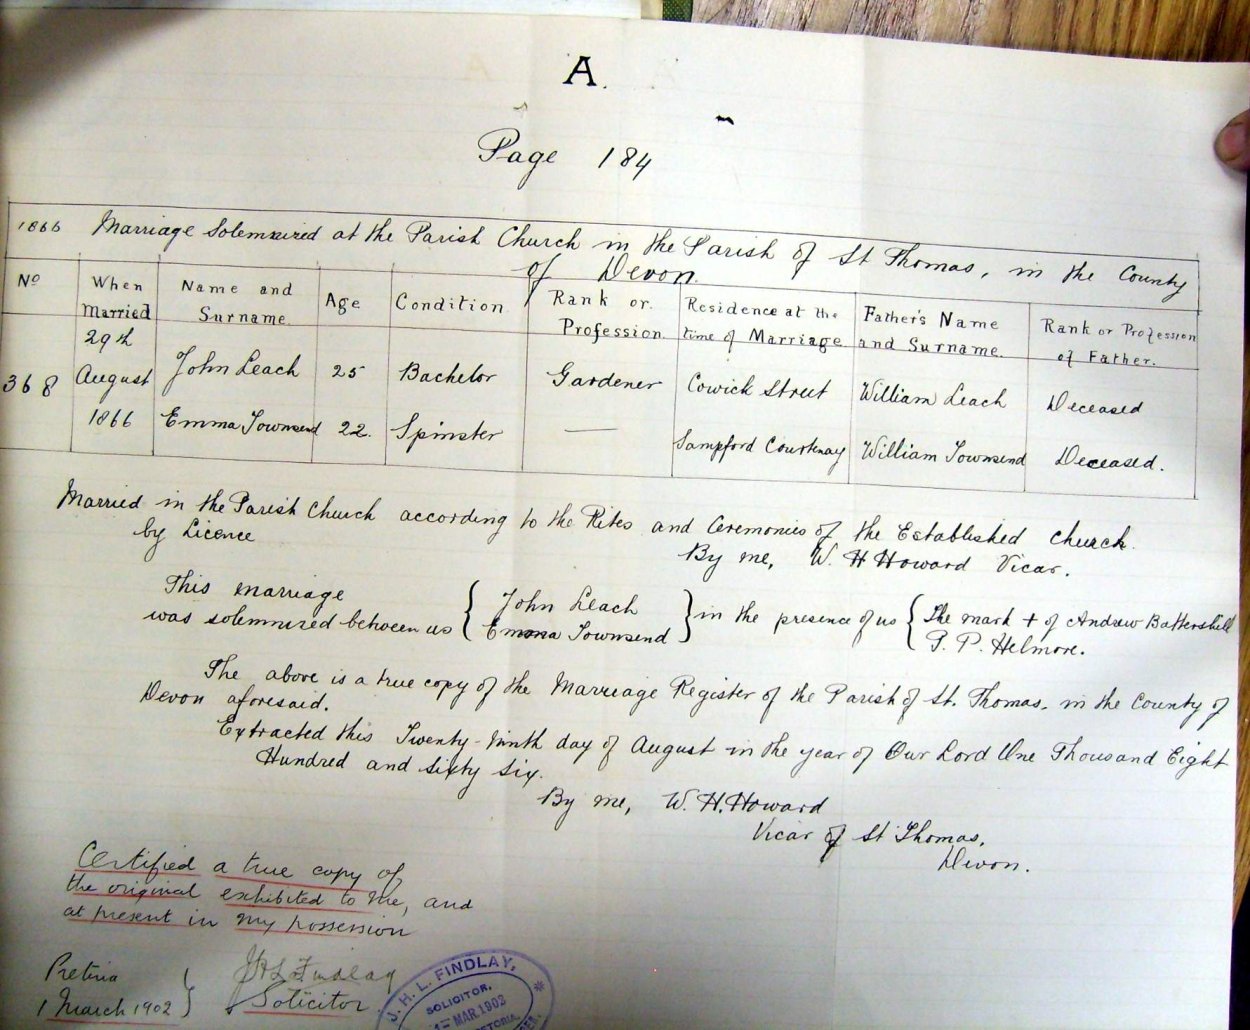 A.
Page 184
1866 Marriage Solemnized at the Parish Church in the Parish of St Thomas, in the County
of Devon.
No When Married Name and Surname Age Condition Rank or Profession Residence at the time of Marriage Father's Name and Surname Rank or Profession of Father.
368 29th August 1866 John Leach 25 Bachelor Gardener Cowick Street William Leach Deceased
Emma Townsend 22. Spinster — Sampford Courtenay William Townsend Deceased.
Married in the Parish Church according to the Rites and Ceremonies of the Established Church.
by Licence
By me, W. H Howard Vicar.
This marriage
was solemnized between us { John Leach
Emma Townsend } in the presence of us { The mark + of Andrew Battershill
P. P. Helmore.
The above is a true copy of the Marriage Register of the Parish of St. Thomas, in the County of
Devon aforesaid.
Extracted this Twenty-Ninth day of August in the year of Our Lord One Thousand Eight
Hundred and Sixty Six.
By me, W. H. Howard
Vicar of St Thomas,
Devon.
Certified a true copy of
the original exhibited to me, and
at present in my possession
Pretoria
1 March 1902 }
JHL Findlay
Solicitor
J. H. L. FINDLAY,
SOLICITOR,
1 - MAR. 1902
PRETORIA.